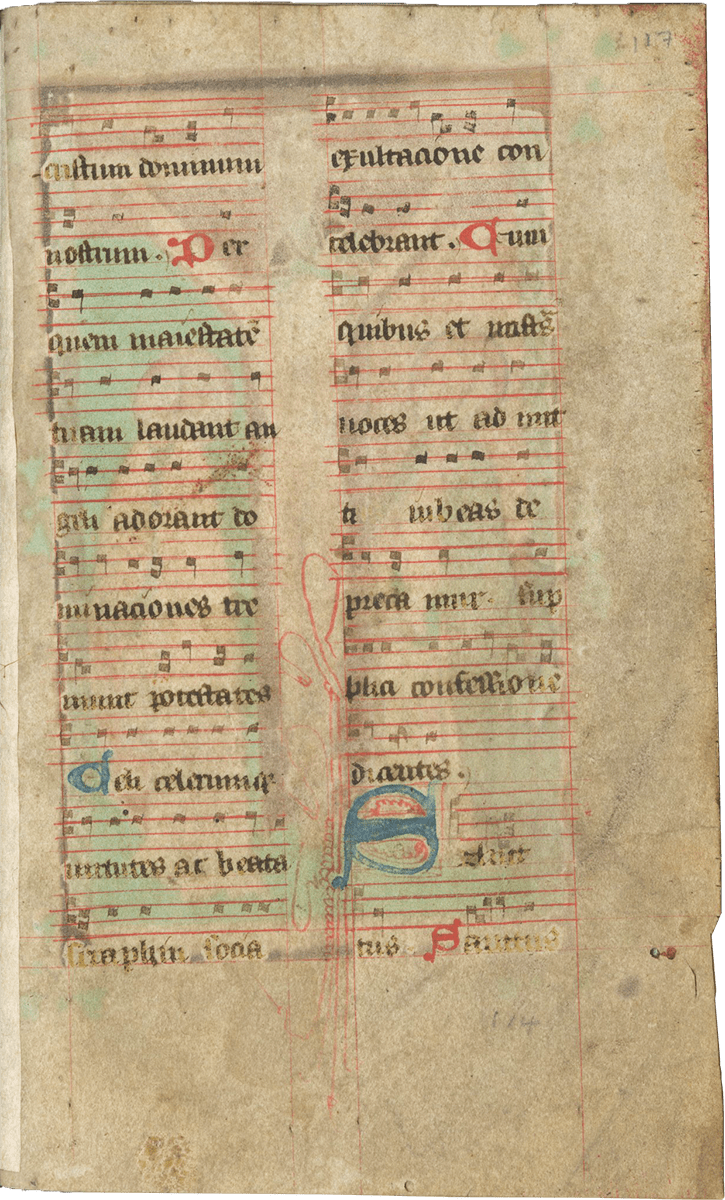 cristum dominum
nostrum. Per
quem maiestatē
tuam laudant an
geli adorant do
minaciones tre
munt potestates
Celi celorumqꝫ
uirtutes ac beata
seraphin socia
exultacione con
celebrant. Cum
quibus et nr̄as
uoces ut ad mit
ti iubeas de
preca mur. sup
plici confessione
dicentes.
tus Sanctus